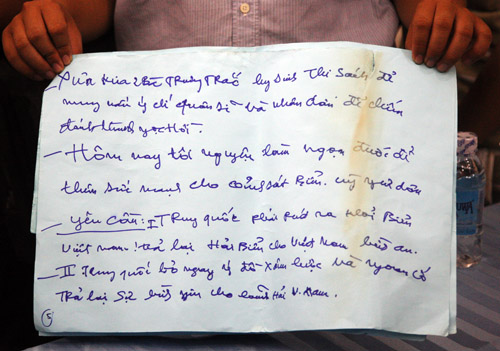 - Xưa kia 2 Bà Trưng Trắc hy sinh Thi Sách để
nung nấu ý chí Quân sĩ và nhân dân để chiến
đánh
- Hôm nay tôi nguyện làm ngọn đuốc để
thêm sức mạnh cho cảnh sát Biển. ngư dân
- Yêu Cầu: I Trung quốc phải rút ra khỏi Biển
Việt nam! trả lại Hải Biển cho Việt Nam bình an.
- II Trung quốc bỏ ngay ý đồ Xâm lược và ngoan cố
Trả lại Sự bình yên cho Hải V. Nam.
5